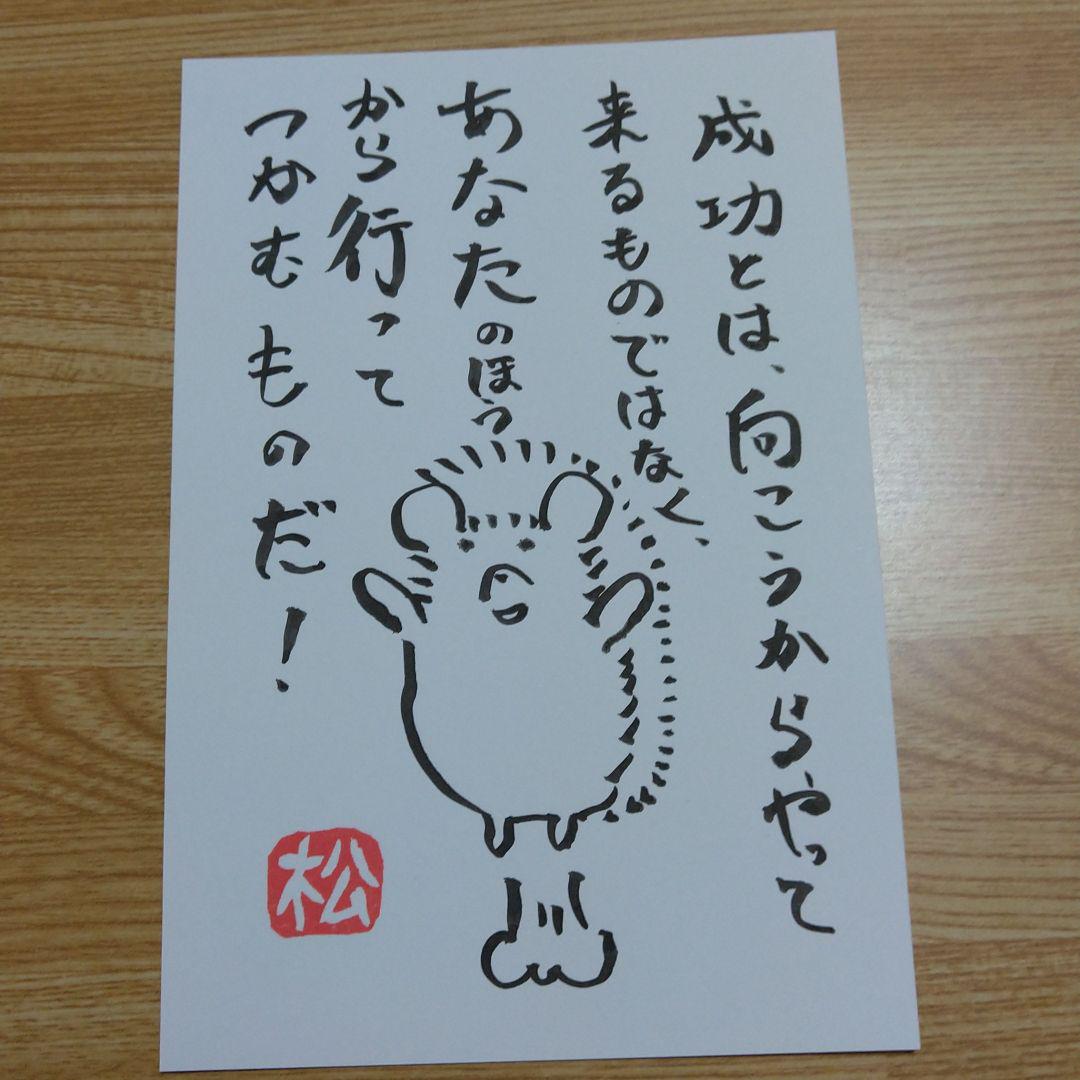 成功とは、向こうからやって
来るものではなく、
あなたのほう
から行って
つかむものだ!
松